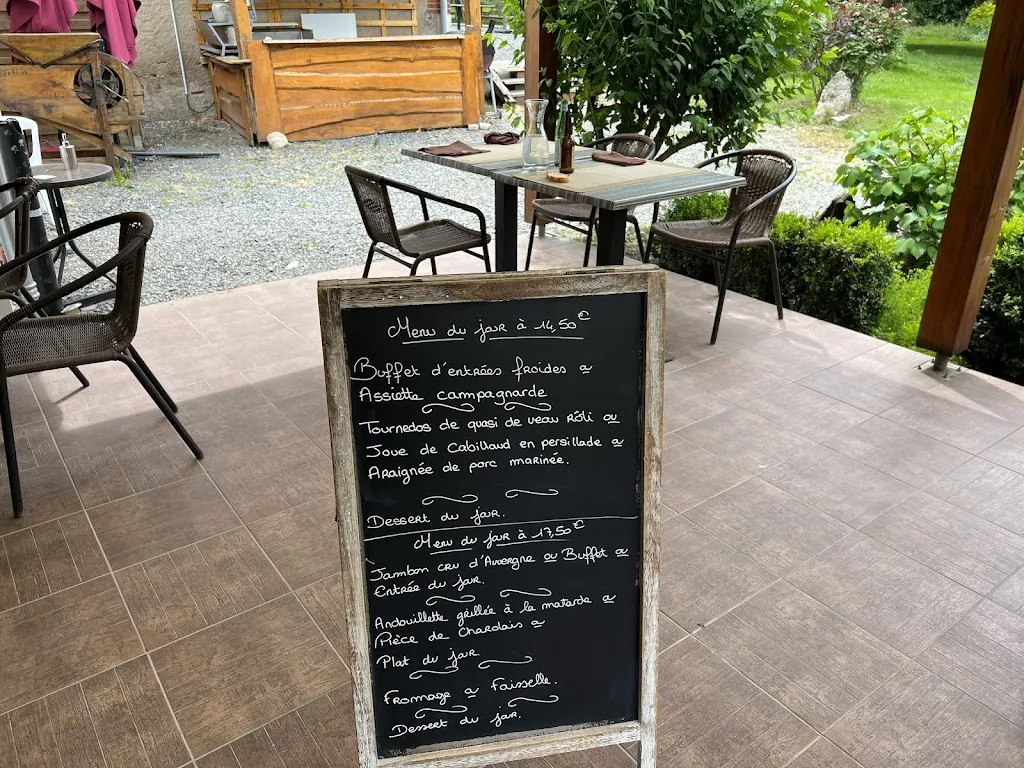 Menu du jour à 14,50€
Buffet d'entrées froides ou
Assiette campagnarde
Tournedos de quasi de veau rôti ou
Joue de Cabillaud en persillade ou
Araignée de porc marinée.
Dessert du jour.
Menu du jour à 17,50€
Jambon cru d'Auvergne ou Buffet ou
Entrée du jour.
Andouillette grillée à la moutarde ou
Pièce de Charolais ou
Plat du jour.
Fromage ou Faisselle.
Dessert du jour.